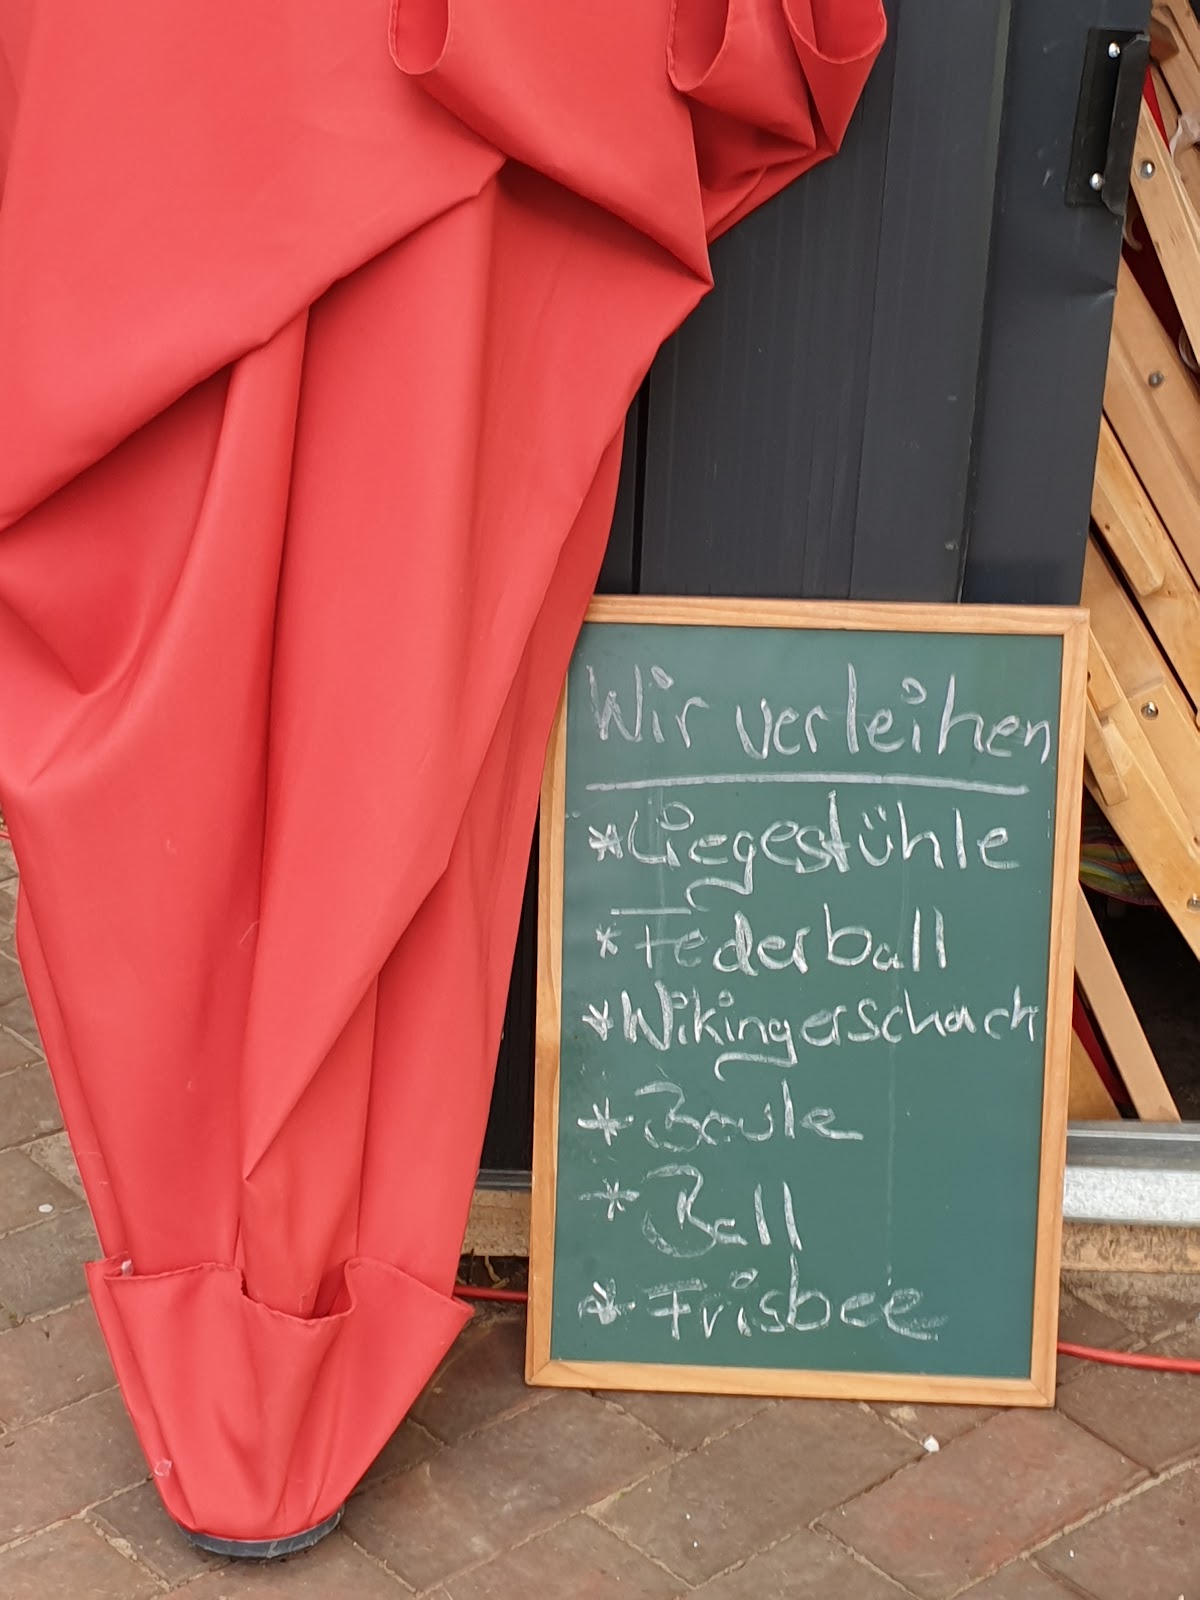 Wir verleihen
* Liegestühle
* Federball
* Wikingerschach
* Boule
* Ball
* Frisbee